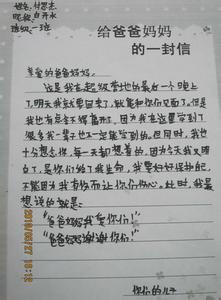 给爸爸妈妈
的一封信
亲爱的爸爸妈妈:
这是我在超级营地的最后一个晚上
了,明天我就要回来了,就能和你们见面了。但是
我也有点舍不得离开,因为我在这里学到了
很多我一辈子也不一定能学到的。但同时,我也
十分想念你,每一天都想着的。因为今天我才明
白了,是你们给了我生命,我要好好保护它,
不能因为我有伤而让你们伤心。此时,我最
想说的就是:
“爸爸妈妈我爱你们!”
“爸爸妈妈谢谢你们!”
你们的儿子